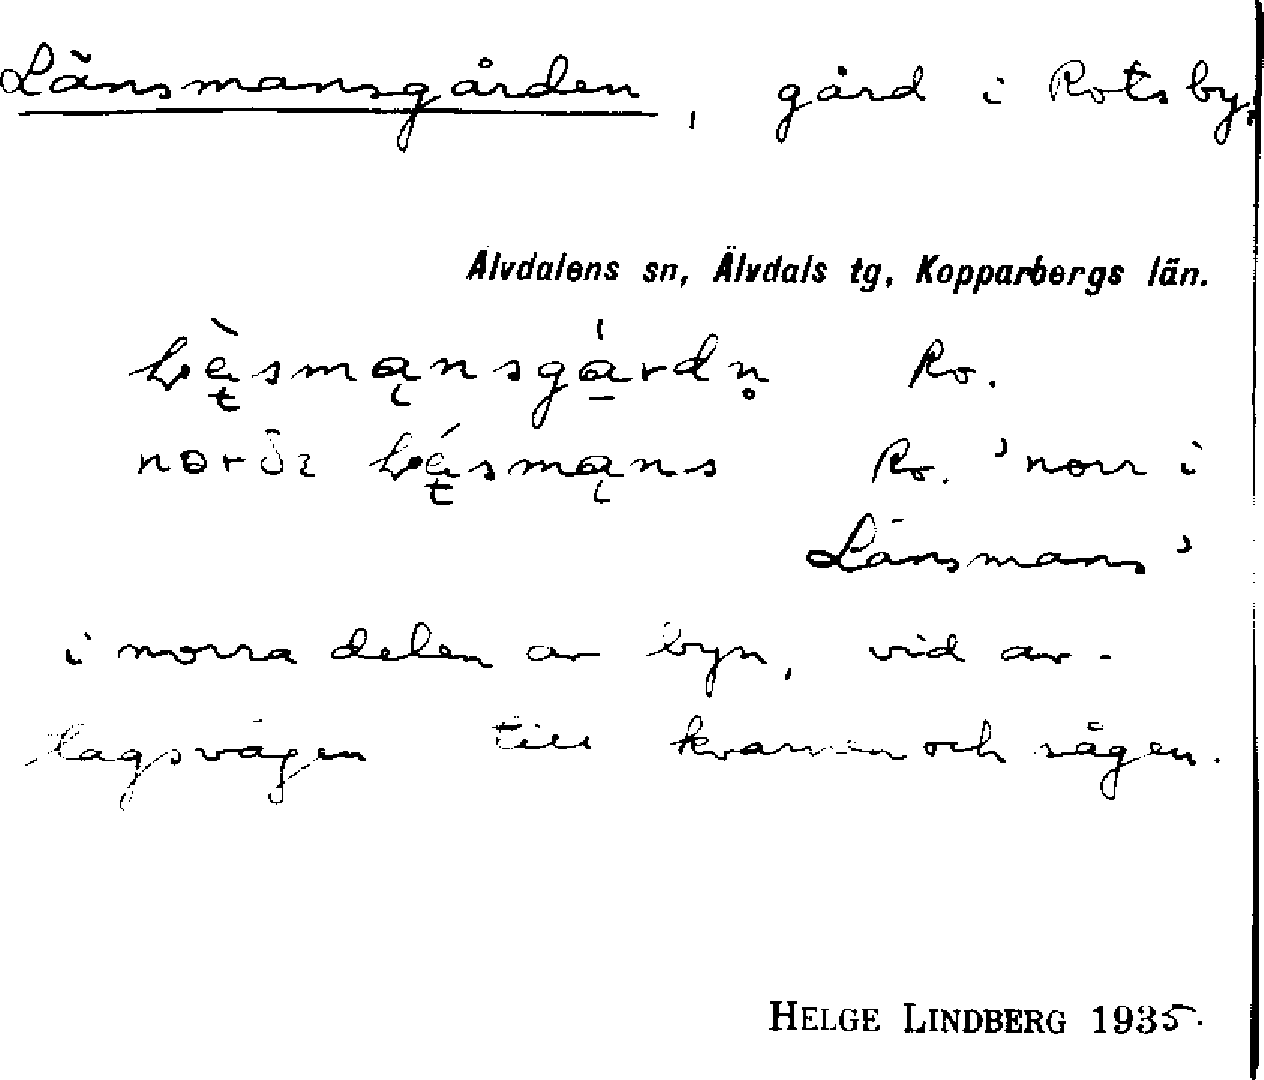 Länsmansgården, gård i Rotsby.
Älvdalens sn, Älvdals tg, Kopparbergs län.
Ro.
Ro. 'norr i
Länsmans'
i norra delen av byn, vid av-
tagsvägen till kvarnen och sågen.
HELGE LINDBERG 1935.